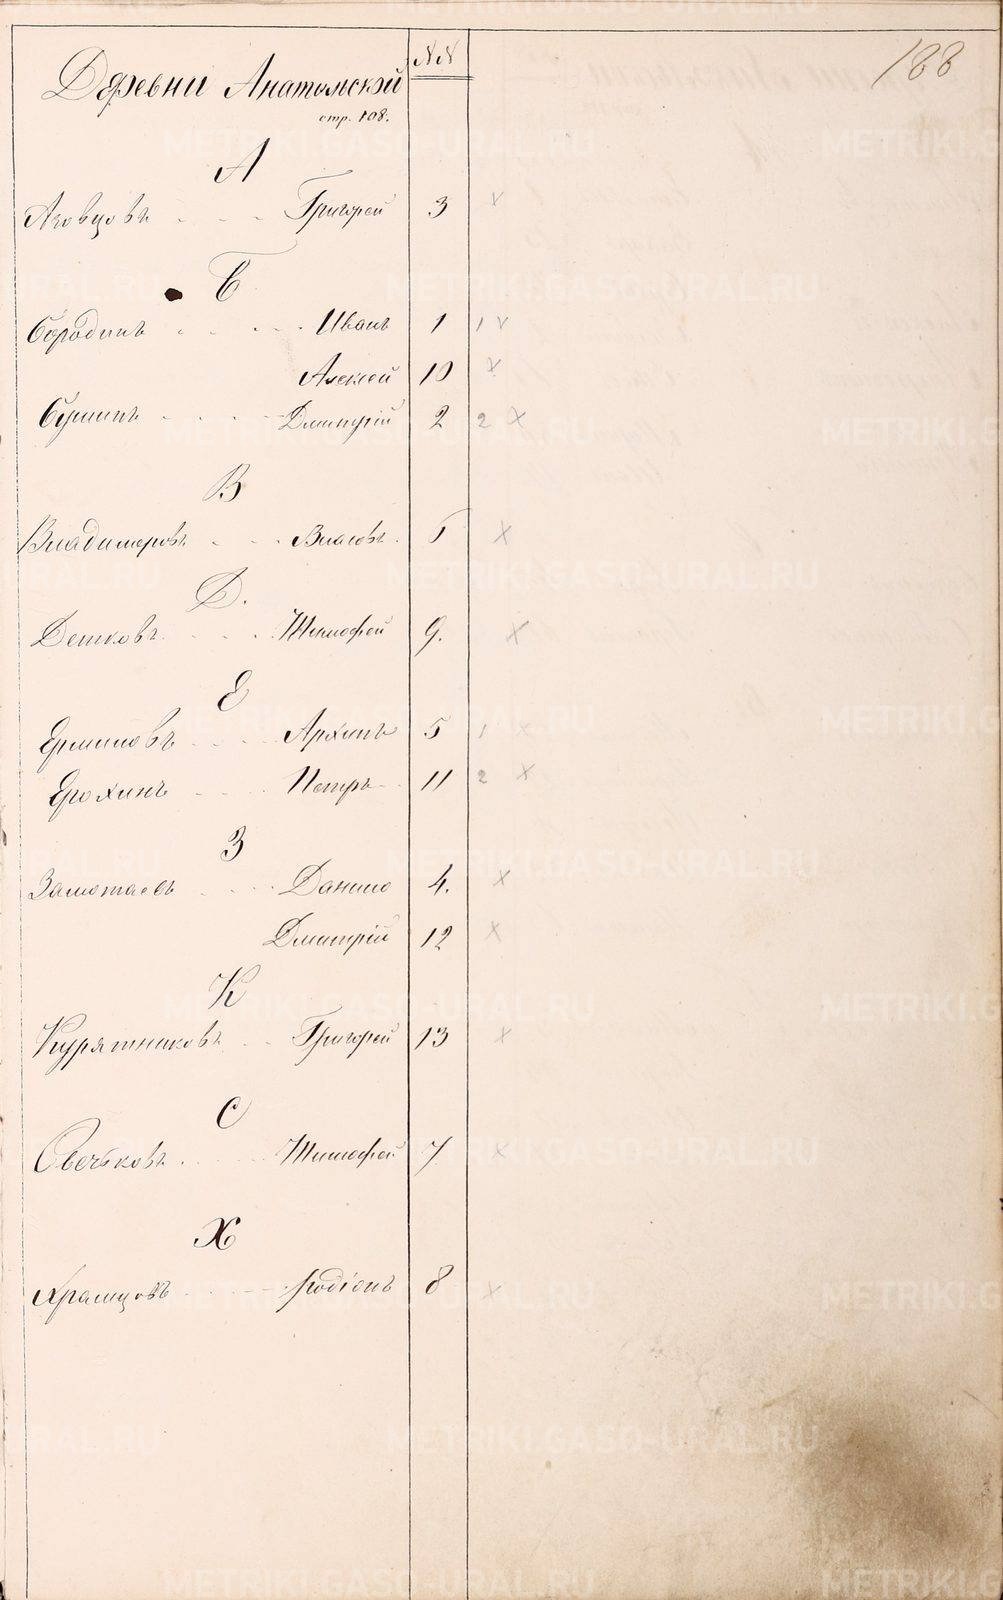 Деревни Анатольской
№№
188
стр. 108.
А
Азовцовъ Григорей 3 v
Б
Бородинъ Иванъ 1 1 v
Алексей 10 x
Дмитрій 2 2 x
В
Владимеровъ Власовъ. 5 x
Д.
Детковъ Тимофей 9. x
Е
Ермиловъ Архипъ 5 1 x
Ерохинъ Петръ 11 2 x
З
Замотаевъ Данило 4. x
Дмитрій 12 x
К
Курятниковъ Григорей 13 x
С
Свечьковъ Тимофей 7 x
Х
Храмцовъ Родіонъ 8 x
METRIKI.GASO-URAL.RU